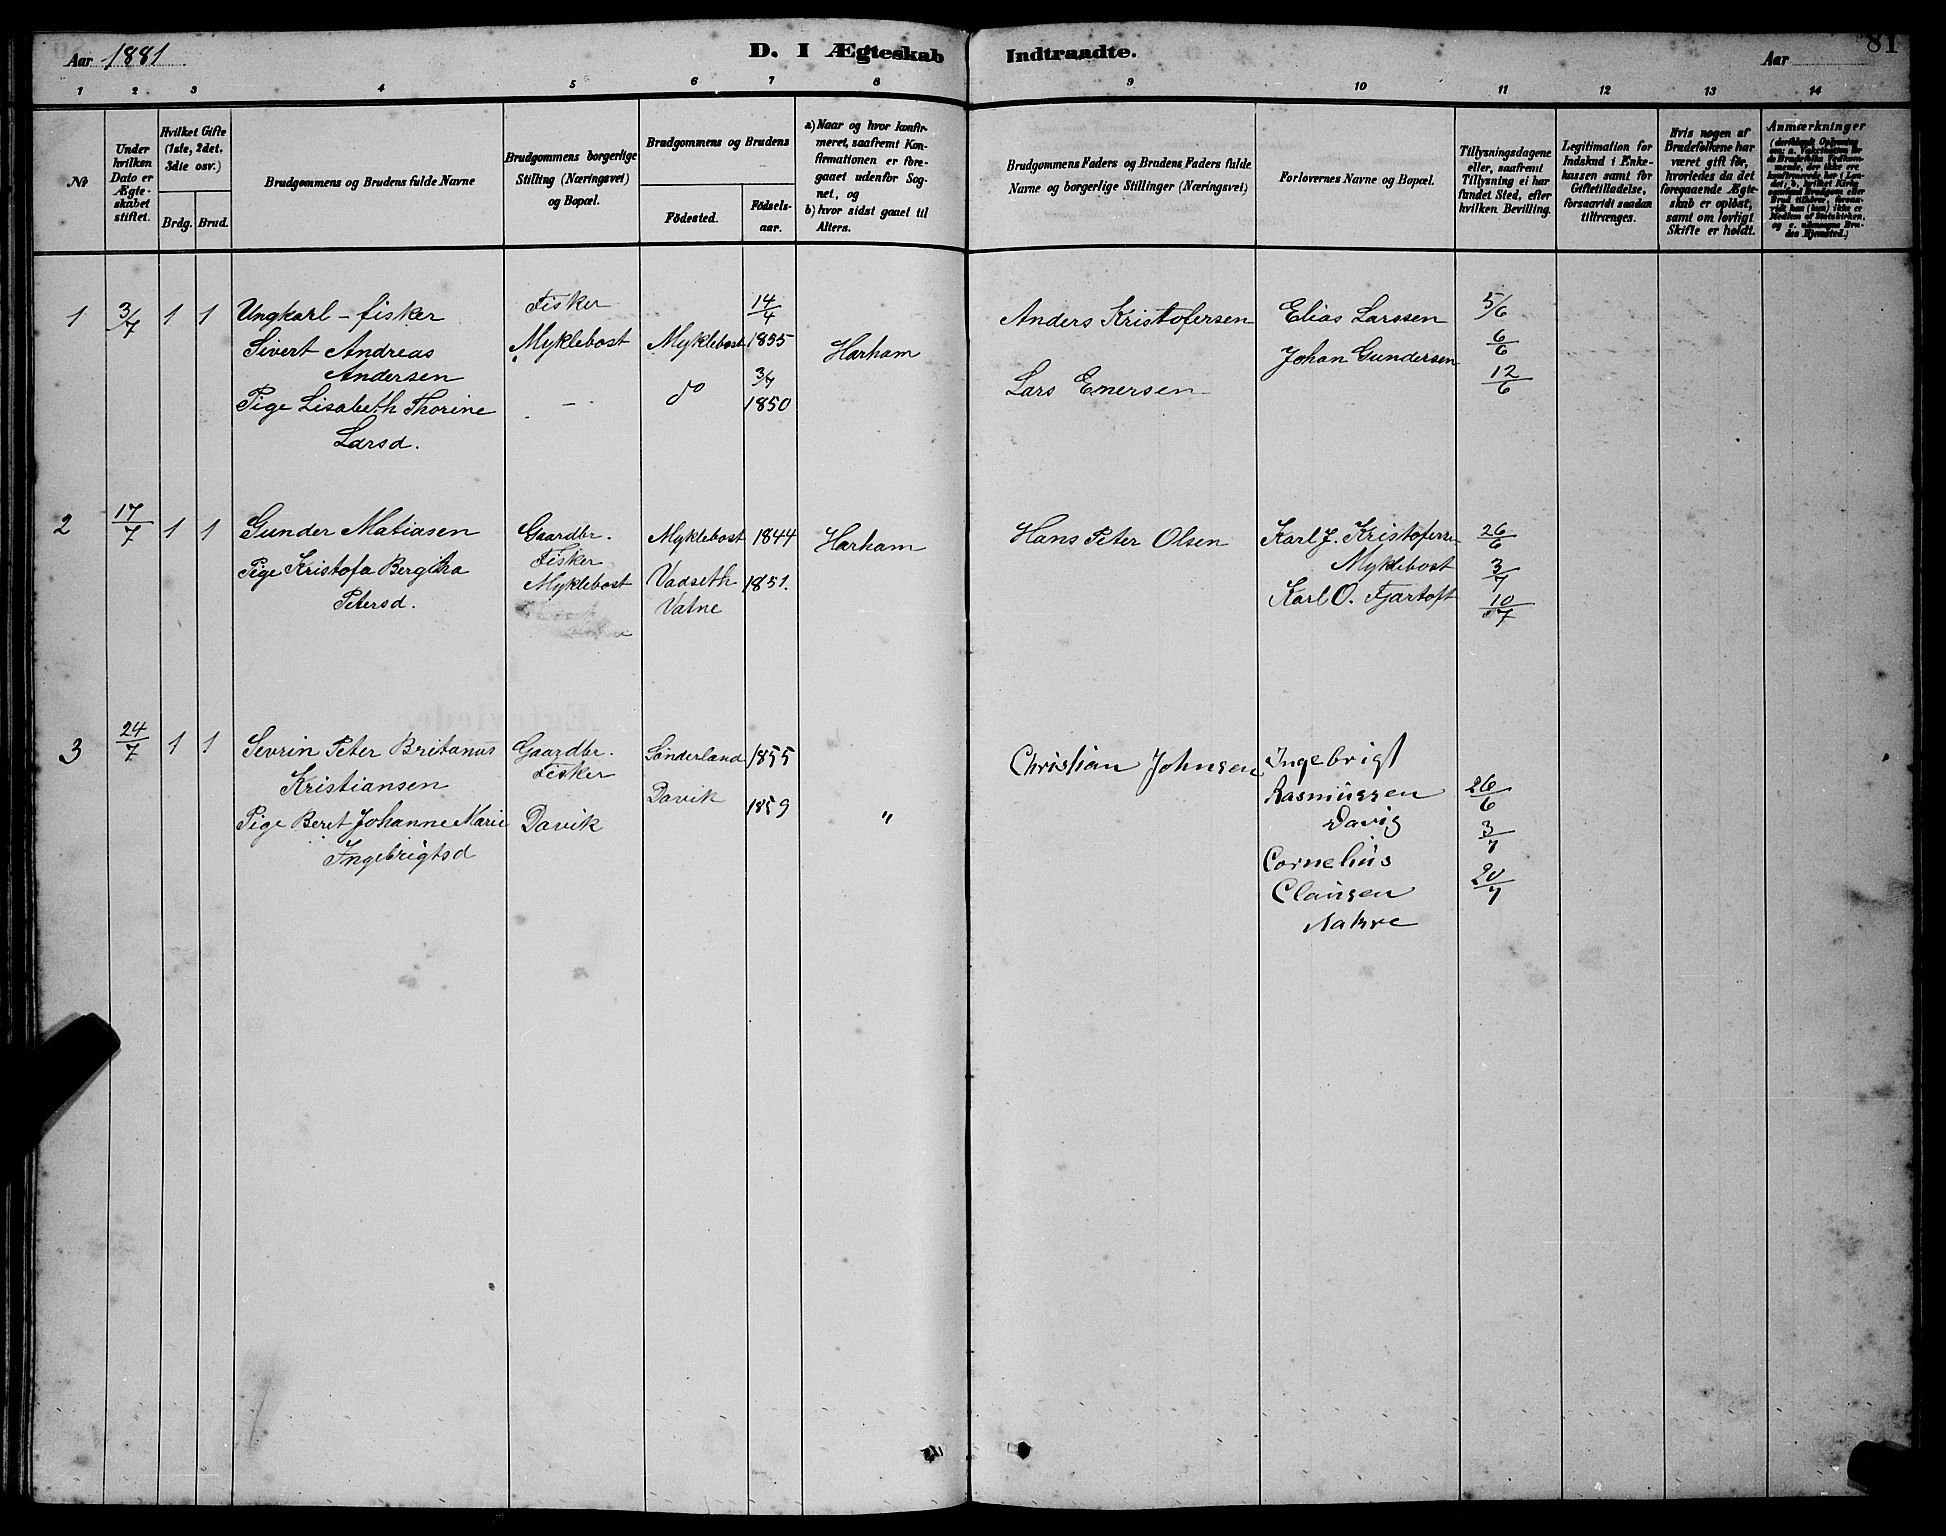 Aar 1881
D. I Ægteskab Indtraadte.
Aar
81
1 2 3 4 5 6 7 8 9 10 11 12 13 14
№
Under hvilken Dato er Ægteskabet stiftet.
Hvilket Gifte (1ste, 2det, 3die osv.)
Brdg. Brud.
Brudgommens og Brudens fulde Navne
Brudgommens borgerlige Stilling (Næringsvei) og Bopæl.
Brudgommens og Brudens
Fødested.
Fødselsaar.
a) Naar og hvor konfirmeret, saafremt Konfirmationen er foregaaet udenfor Sognet, og
b) hvor sidst gaaet til Alters.
Brudgommens Faders og Brudens Faders fulde Navne og borgerlige Stillinger (Næringsvei)
Forlovernes Navne og Bopæl.
Tillysningsdagene eller, saafremt Tillysning ei har fundet Sted, efter hvilken Bevilling.
Legitimation for Indskud i Enkekassen samt for Giftetilladelse, forsaavidt saadan tiltrænges.
Hvis nogen af Brudefolkene har været gift før, hvorledes da det foregaaende Ægteskab er opløst, samt om lovligt Skifte er holdt.
Anmærkninger
1 3/7 1 1
Ungkarl - fisker
Sivert Andreas
Andersen
Pige Lisabeth Thorine
Larsd.
Fisker
Myklebost
-
Myklebost
do
14/4
1855
3/7
1850
Harham
Anders Kristofersen
Lars Emersen
Elias Larssen
Johan Gundersen
5/6
6/6
12/6
2 17/7 1 1
Gunder Matiasen
Pige Kristofa Bergitha
Petersd.
Gaardbr.
Fisker
Myklebost
Myklebost
Vadseth
Vatne
1844
1851.
Harham
Hans Peter Olsen
Karl J. Kristoferse
Myklebost
Karl O. Fjærtoft
26/6
3/7
10/7
3 24/7 1 1
Sevrin Peter Britanus
Kristiansen
Pige Beret Johanne Marie
Ingebrigtsd
Gaardbr.
Fisker
Davik
Sønderland
Davik
1855
1859
"
Christian Johnsen
Ingebrigt
Rasmussen
Davig
Cornelius
Clausen
Nakre
26/6
3/7
20/7